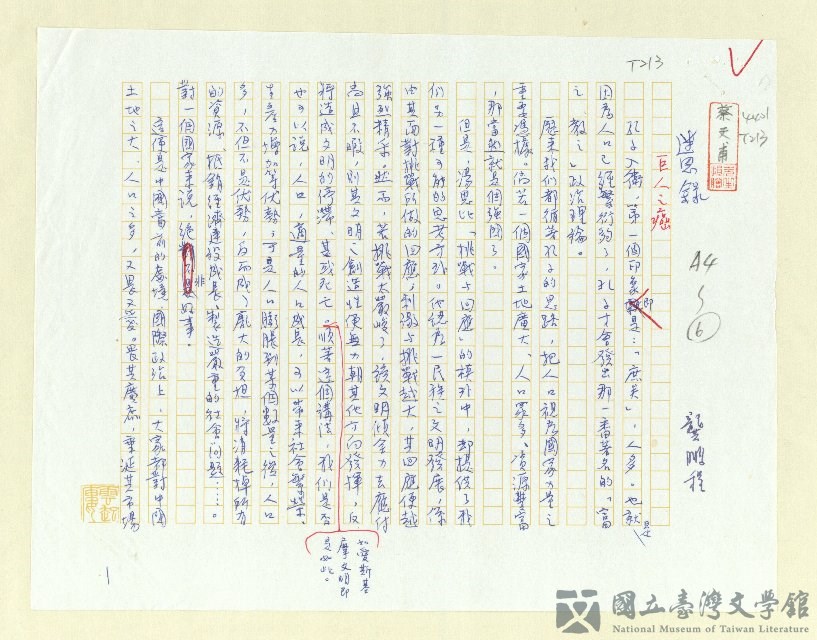 T213
4401
T213
蔡文甫
迷思錄
A4
6
龔鵬程
巨人之癌
孔子入衛,第一個印象即是:「庶矣」,人多。也就是
因為人口已經繁衍夠了,孔子才會發出那一番著名的「富
之、教之」政治理論。
歷來我們都循著孔子的思路,把人口視為國家力量之
重要憑樣。倘若一個國家土地廣大、人口眾多、資源豐富
,那當然就是個強國了。
但是,湯恩比「挑戰與回應」的模型中,卻提供了我
們另一種可能的思考方式。他認為一民族之文明發展,係
由其面對挑戰所做的回應,刺激與挑戰越大,其回應便越
強烈精采。然而,若挑戰太嚴峻了,該文明傾全力去應付
尚且不暇,則其文明之創造性便無力朝其他方向發揮,反
將造成文明的停滯、甚或死亡。順著這個講法,我們是否
如愛斯基
摩文明即
是如此。
也可以說,人口,適量的人口成長,可以帶來社會繁榮、
生產力增加等優勢;可是人口膨脹到某個數量之後,人口
多,不但不是優勢,反而成了龐大的負担,將消耗掉所有
的資源、抵銷經濟建設成長、製造嚴重的社會問題……。
對一個國家來說,絕非好事。
這便是中國當前的處境。國際政治上,大家都對中國
土地之大、人口之多,又畏又愛。畏其廣庶,垂涎其市場
1
國立臺灣文學館
National Museum of Taiwan Literature